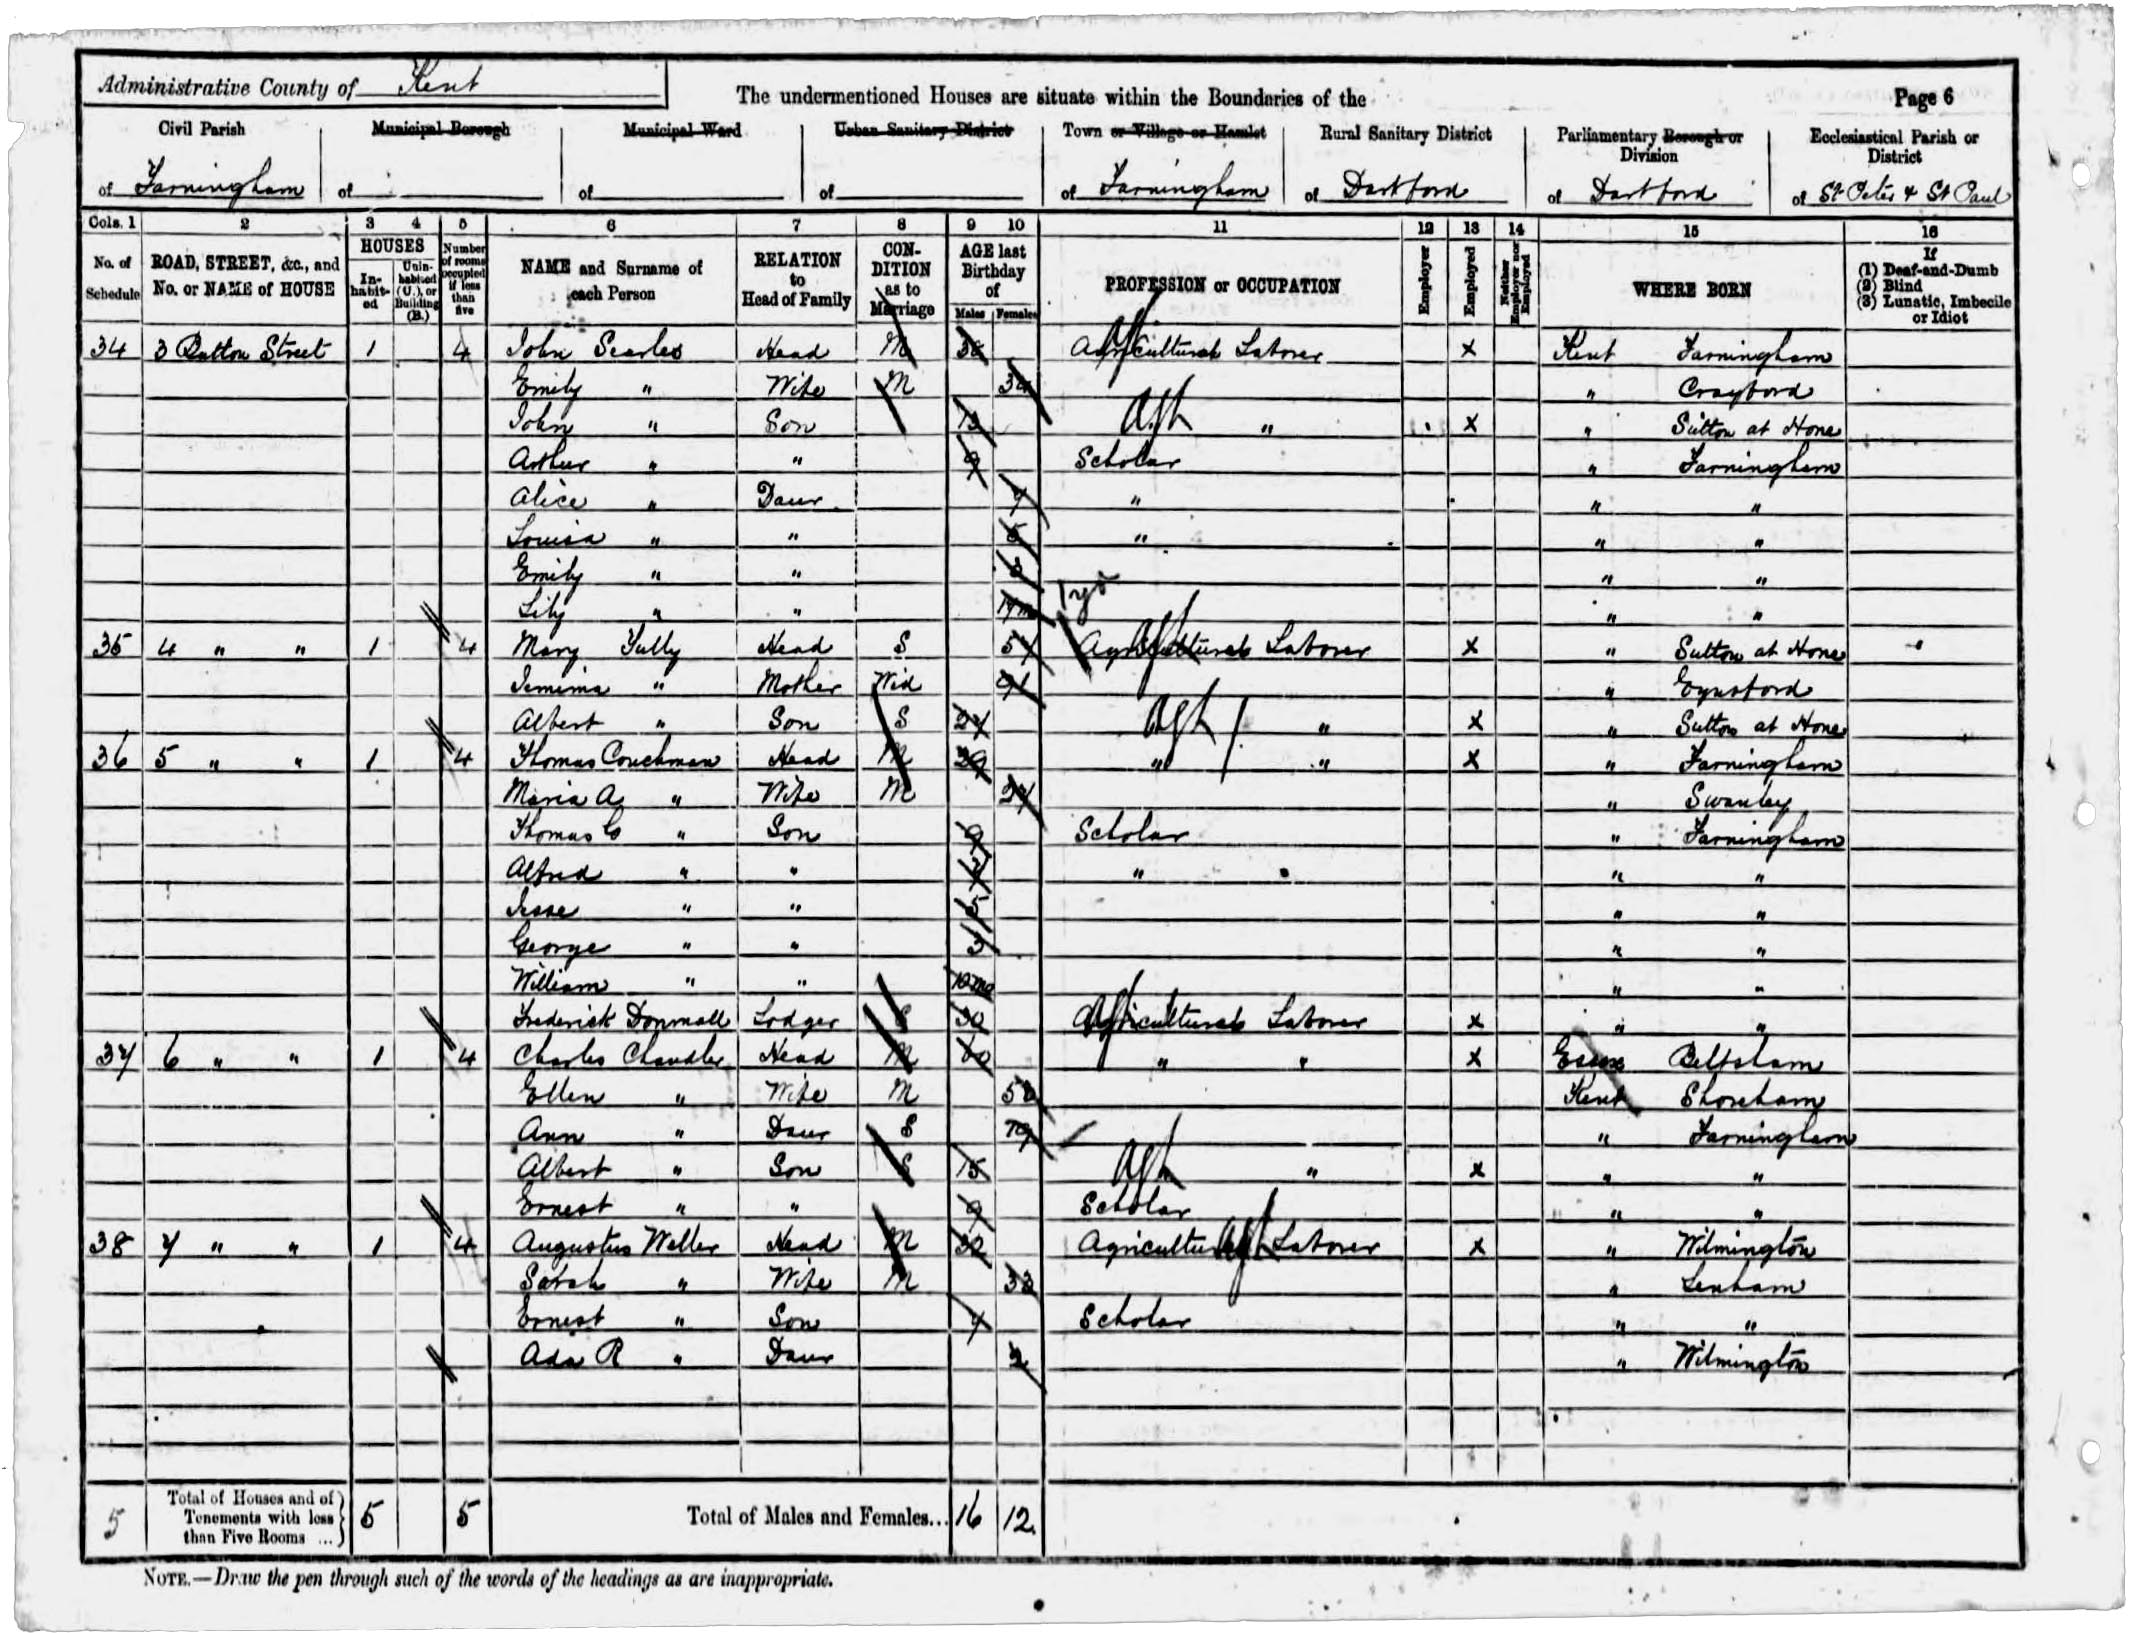 Administrative County of Kent
The undermentioned Houses are situate within the Boundaries of the
Page 6
Civil Parish of Farningham
Municipal Borough of
Municipal Ward of
Urban Sanitary District of
Town or Village or Hamlet of Farningham
Rural Sanitary District of Dartford
Parliamentary Borough or Division of Dartford
Ecclesiastical Parish or District of St Peter & St Paul
Cols. 1 2 3 4 5 6 7 8 9 10 11 12 13 14 15 16
No. of Schedule
ROAD, STREET, &c., and No. or NAME of HOUSE
HOUSES
In-habit-ed
Unin-habited (U.), or Building (B.)
Number of rooms occupied if less than five
NAME and Surname of each Person
RELATION to Head of Family
CON-DITION as to Marriage
AGE last Birthday of
Males Females
PROFESSION or OCCUPATION
Employer
Employed
Neither Employer nor Employed
WHERE BORN
If (1) Deaf-and-Dumb (2) Blind (3) Lunatic, Imbecile or Idiot
34 3 Button Street 1 4 John Searles Head M Agricultural Laborer x Kent Farningham
Emily " Wife M " Crayford
John " Son 13 Ag L " x " Sutton at Hone
Arthur " " 9 Scholar " Farningham
Alice " Daur 7 " " "
Louisa " " 5 " " "
Emily " " " "
Lily " " 1 yr " "
35 4 " " 1 4 Mary Tully Head S 57 Agricultural Laborer x " Sutton at Hone
Jemima " Mother Wid 91 " Eynsford
Albert " Son S 27 Ag L " x " Sutton at Hone
36 5 " " 1 4 Thomas Couchman Head M 29 " " x " Farningham
Maria A " Wife M 27 " Swanley
Thomas G " Son 9 Scholar " Farningham
Alfred " " 7 " " "
Jesse " " 5 " "
George " " 3 " "
William " " 10 mo " "
Frederick Donmall Lodger S 30 Agricultural Laborer x " "
37 6 " " 1 4 Charles Chandler Head M 60 " " x Essex Beltsham
Ellen " Wife M Kent Shoreham
Ann " Daur S 19 " Farningham
Albert " Son S 15 Ag L " x " "
Ernest " " 9 Scholar " "
38 7 " " 1 4 Augustus Weller Head M 32 Agricultural Laborer x " Wilmington
Sarah " Wife M 33 " Lenham
Ernest " Son 7 Scholar " "
Ada R " Daur 2 " Wilmington
5 Total of Houses and of Tenements with less than Five Rooms ... 5 5 Total of Males and Females... 16 12
NOTE.—Draw the pen through such of the words of the headings as are inappropriate.